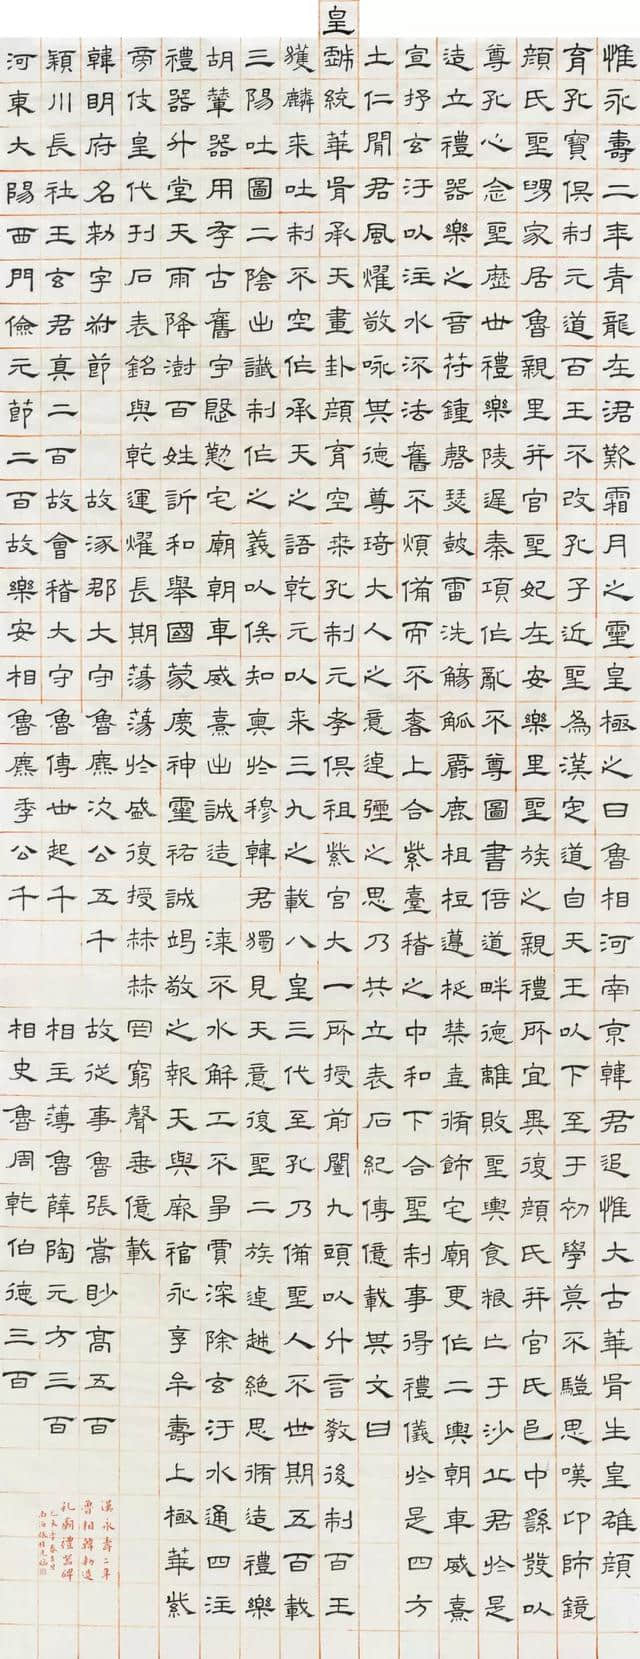 惟永壽二年青龍在涒歎霜月之靈皇極之日魯相河南京韓君追惟大古華胥生皇雄顔
育孔寶俱制元道百王不改孔子近聖為漢定道自天王以下至于初學莫不驥思嘆卬師鏡
顔氏聖舅家居魯親里并官聖妃在安樂里聖族之親禮所宜異復顔氏并官氏邑中繇發以
尊孔心念聖歷世禮樂陵遲秦項作亂不尊圖書倍道畔德離敗聖輿食粮亡于沙丘君於是
造立禮器樂之音苻鍾磬瑟鼓雷洗觴觚爵鹿柤梪籩柉禁壺脩飾宅廟更作二輿朝車威熹
宣抒玄汙以注水流法舊不煩備而不奢上合紫臺稽之中和下合聖制事得禮儀於是四方
土仁聞君風燿敬咏其德尊琦大人之意逴彊之思乃共立表石紀傳億載其文曰
皇戲統華胥承天畫卦顔育空桑孔制元孝俱祖紫宮大一所授前闓九頭以升言教後制百王
獲麟來吐制不空作承天之語乾元以來三九之載八皇三代至孔乃備聖人不世期五百載
三陽吐圖二陰出讖制作之義以俟知奧於穆韓君獨見天意復聖二族逴越絕思脩造禮樂
胡輦器用存古舊宇慇懃宅廟朝車威熹出誠造 漆不水解工不爭賈深除玄汙水通四注
禮器升堂天雨降澍百姓訢和舉國蒙慶神靈祐誠竭敬之報天與厥福永享牟壽上極華紫
旁伎皇代刊石表銘與乾運燿長期蕩蕩於盛復授赫赫罔窮聲垂億載
韓明府名勑字叔節 故涿郡大守魯麃次公五千 故從事魯張嵩眇高五百
潁川長社王玄君真二百 故會稽大守魯傅世起千 相主薄魯薛陶元方三百
河東大陽西門儉元節二百 故樂安相魯麃季公千 相史魯周乾伯德三百
漢永壽二年
魯相韓勑造
孔廟禮器碑